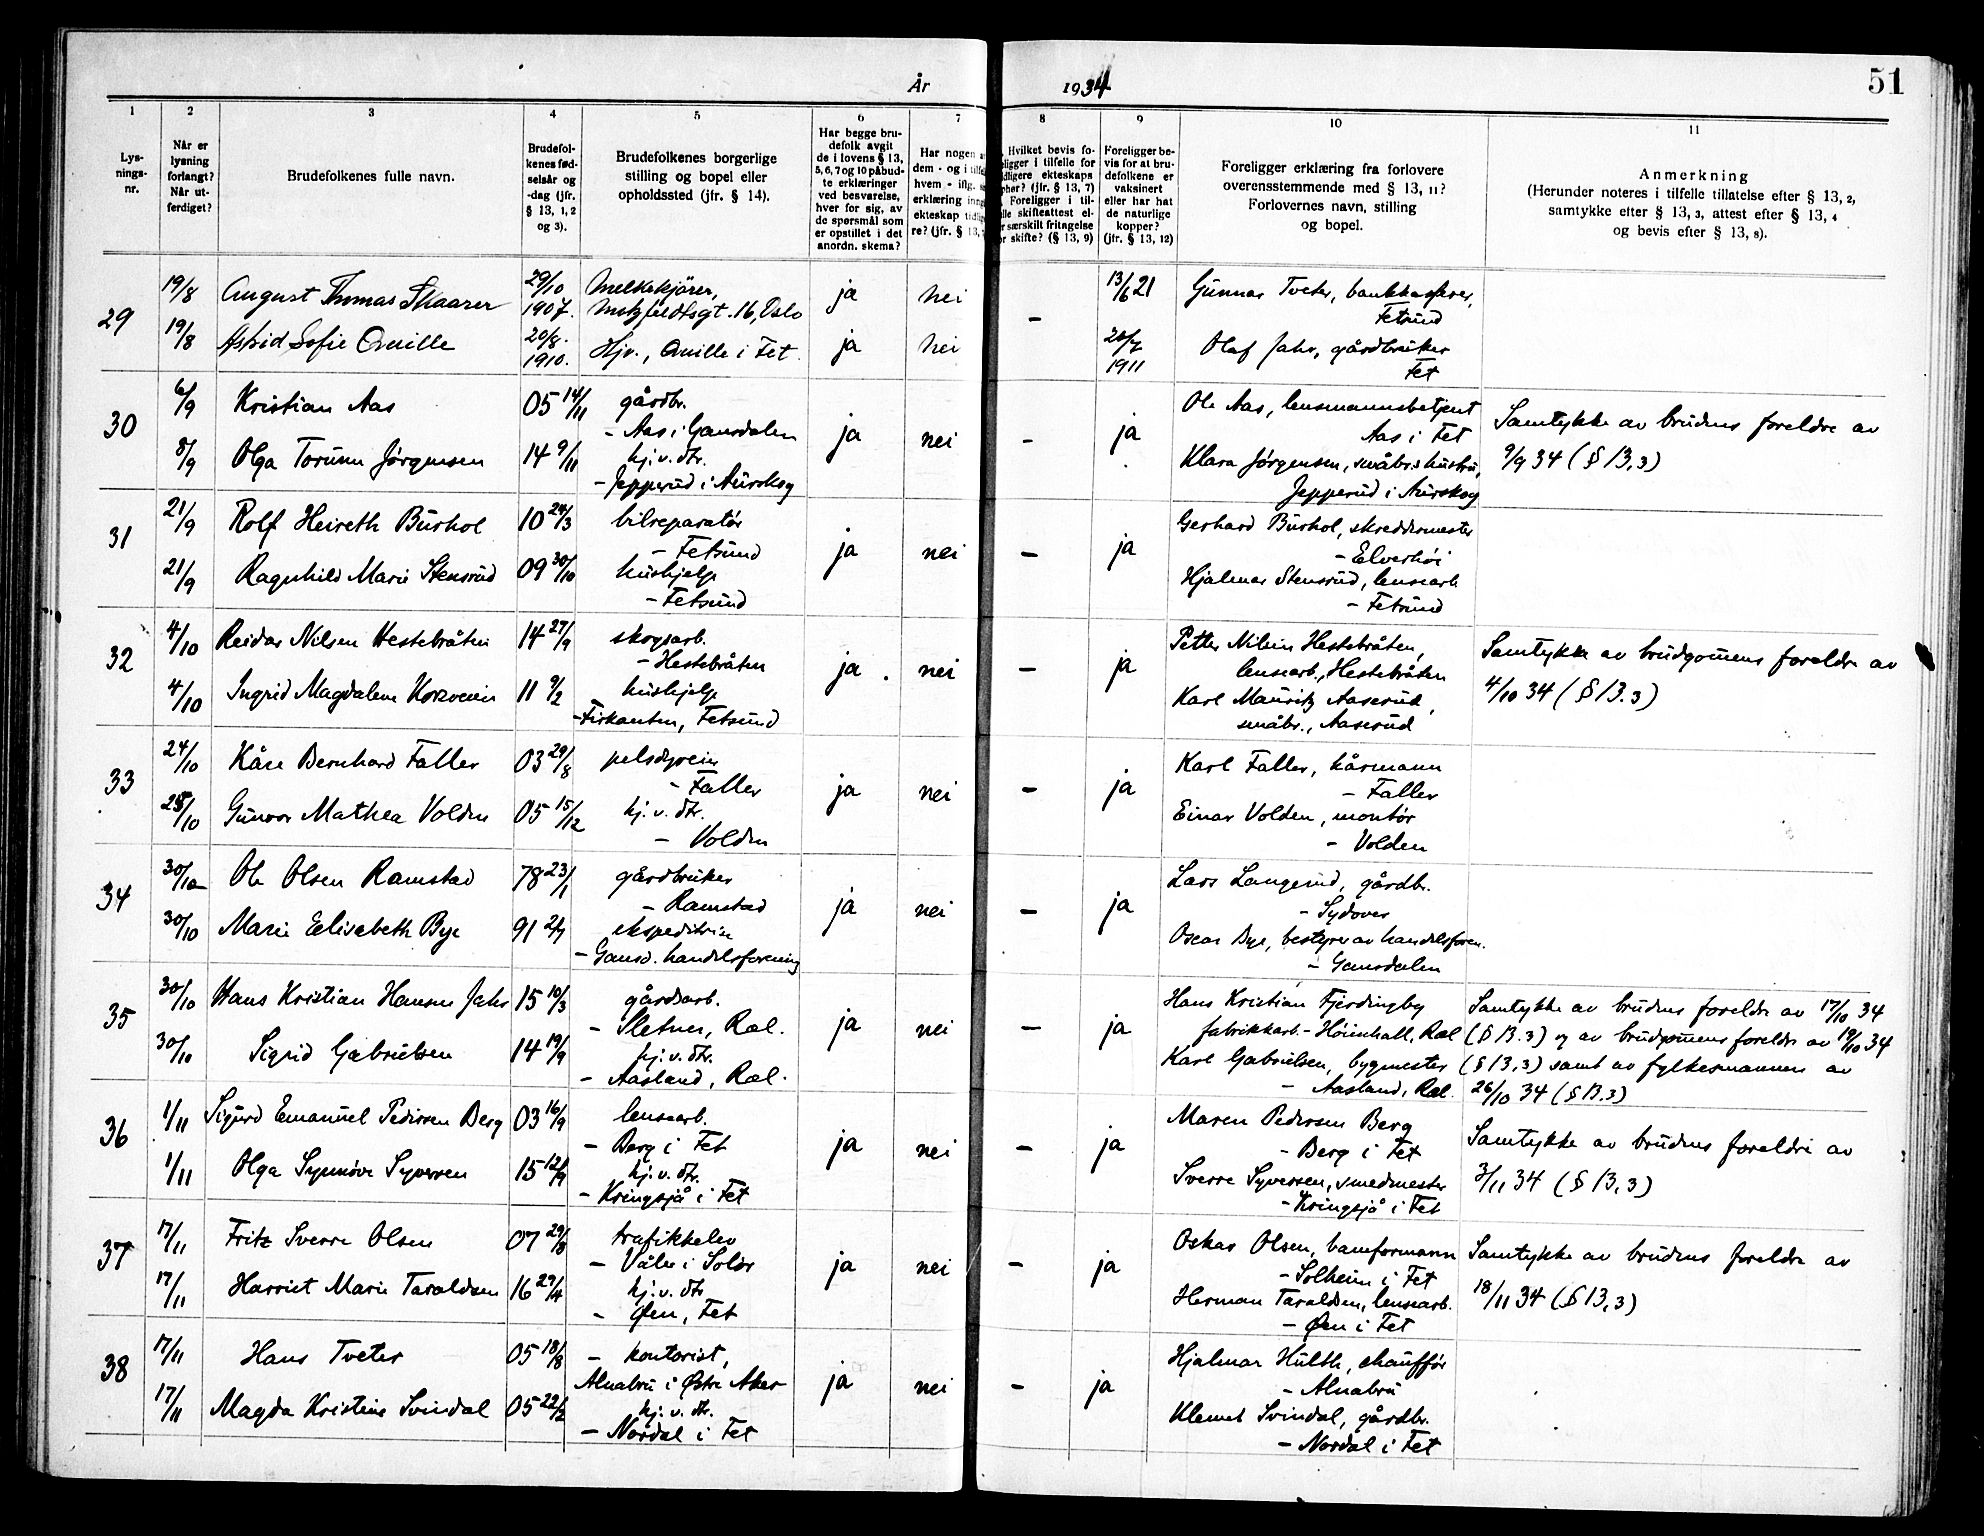 År 1934 51
1 2 3 4 5 6 7 8 9 10 11
Lysningsnr.
Når er lysning forlangt? Når utferdiget?
Brudefolkenes fulle navn.
Brudefolkenes fødselsår og -dag (jfr. § 13, 1, 2 og 3).
Brudefolkenes borgerlige stilling og bopel eller opholdssted (jfr. § 14).
Har begge brudefolk avgit de i lovens § 13, 5, 6, 7 og 10 påbudte erklæringer ved besvarelse, hver for sig, av de spørsmål som er opstillet i det anordn. skema?
Har nogen dem - og i hvem - iflg. erklæring ekteskap re? (jfr. § 13,
Hvilket bevis for i tilfelle for ekteskaps (jfr. § 13, 7) Foreligger i skifteattest særskilt fritagelse skifte? (§ 13, 9)
Foreligger bevis for at brudefolkene er vaksinert eller har hat de naturlige kopper? (jfr. § 13, 12)
Foreligger erklæring fra forlovere overensstemmende med § 13, 11? Forlovernes navn, stilling og bopel.
Anmerkning (Herunder noteres i tilfelle tillatelse efter § 13, 2, samtykke efter § 13, 3, attest efter § 13, 4 og bevis efter § 13, 8).
29 19/8 August Thomas Skaarer 29/10 1907. Melkekjører, Motzfeldtsgt. 16, Oslo ja nei – 13/6 21 Gunnar Tveter, bankkasserer, Fetsund
19/8 Astrid Sofie Qville 20/8. 1910. Hjv., Qville i Fet. ja nei 1911 Olaf Jahr, gårdbruker Fet
30 6/9 Kristian Aas 05 14/11 gårdbr. – Aas i Gansdalen ja nei – ja Ole Aas, lensmannsbetjent Aas i Fet
Samtykke av brudens foreldre av 9/9 34 (§ 13,3)
8/9 Olga Torunn Jørgensen 14 9/11 hj.v.dtr. – Jepperud i Aurskog Klara Jørgensen, småbr.shustru, Jepperud i Aurskog
31 21/9 Rolf Heireth Burhol 10 24/3 bilreparatør – Fetsund ja nei – ja Gerhard Burhol, skreddermester – Elverhøi
21/9 Ragnhild Marie Stensrud 09 30/10 hushjelp – Fetsund Hjalmar Stensrud, lensearb. – Fetsund
32 4/10 Reidar Nilsen Hestebråten 14 27/9 skogsarb. – Hestebråten ja nei – ja Petter Nilsen Hestebråten, lensearb., Hestebråten
Samtykke av brudgomens foreldre av 4/10 34 (§ 13.3)
4/10 Ingrid Magdalene 11 9/2 hushjelp – Firkanten, Fetsund Karl Mauritz Aaserud, småbr., Aaserud
33 24/10 Kåre Bernhard Faller 03 29/8 – Faller ja nei – ja Karl Faller, kårmann – Faller
25/10 Gunvor Mathea Volden 05 15/12 hj.v.dtr. – Volden Einar Volden, montør – Volden
34 30/10 Ole Olsen Ramstad 78 23/1 gårdbruker – Ramstad ja nei – ja Lars Langerud, gårdbr. – Sydover
30/10 Marie Elisabeth Bye 91 2/7 ekspeditrise – Gansd. handelsforening Oscar Bye, bestyrer av handelsforen. – Gansdalen
35 30/10 Hans Kristian Hansen Jahr 15 10/3 gårdsarb. – Sletner, Ræl. ja nei – ja Hans Kristian Fjerdingby fabrikkarb. – Høienhall, Ræl
30/10 Sigrid Gabrielsen 14 19/9 hj.v.dtr. – Aasland, Ræl. Karl Gabrielsen, bygmester – Aasland, Ræl.
Samtykke av brudens foreldre av 17/10 34
(§ 13.3) og av brudgomens foreldre av 19/10 34
(§ 13,3) samt av fylkesmannen av
26/10 34 (§ 13.3)
36 1/11 Sigurd Emanuel Pedersen Berg 03 16/9 lensearb. – Berg i Fet ja nei – ja Maren Pedersen Berg – Berg i Fet
1/11 Olga Synnøve Syversen 15 12/9 hj.v.dtr. – Kringsjå i Fet Sverre Syversen, smedmester – Kringsjå i Fet
Samtykke av brudens foreldre av 3/11 34 (§ 13,3)
37 17/11 Fritz Sverre Olsen 07 29/8 trafikkelev – Våler i Solør ja nei – ja Oskar Olsen, baneformann – Solheim i Fet
17/11 Harriet Marie Taraldsen 16 27/4 hj.v.dtr – Øen, Fet Herman Taraldsen, lensearb. – Øen i Fet
Samtykke av brudens foreldre av 18/11 34 (§ 13,3)
38 17/11 Hans Tveter 05 18/8 – kontorist, Alnabru i Østre Aker ja nei – ja Hjalmar Hulth, chauffør – Alnabru
17/11 Magda Kristine Svindal 05 22/2 hj.v.dtr. – Nordal i Fet Klemet Svindal, gårdbr. – Nordal i Fet